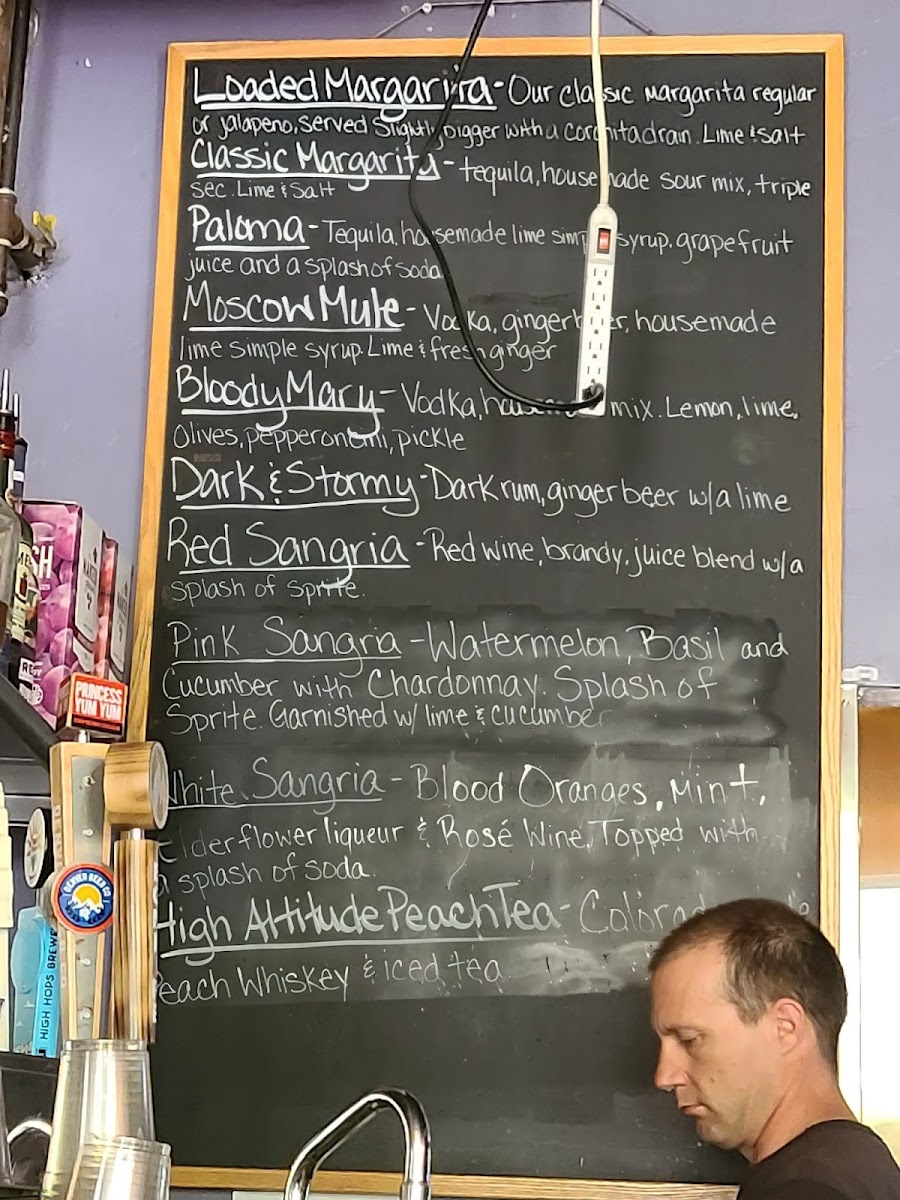 Loaded Margarita - Our classic Margarita regular
or jalapeno, served slightly bigger with a coronita drain. Lime & salt
Classic Margarita - tequila, housemade sour mix, triple
sec. Lime & Salt
Paloma - Tequila, housemade lime simple syrup. grapefruit
juice and a splash of soda
Moscow Mule - Vodka, ginger beer, housemade
lime simple syrup. Lime & fresh ginger
Bloody Mary - Vodka, house mix. Lemon, lime,
Olives, pepperoncini, pickle
Dark & Stormy - Dark rum, ginger beer w/a lime
Red Sangria - Red wine, brandy. juice blend w/a
splash of sprite.
Pink Sangria - Watermelon, Basil and
Cucumber with Chardonnay. Splash of
Sprite. Garnished w/ lime & cucumber
White Sangria - Blood Oranges, Mint,
Elderflower liqueur & Rosé Wine, Topped with
a splash of soda.
High Altitude Peach Tea - Colorado
Peach Whiskey & iced tea
PRINCESS
YUM YUM
DENVER BEER CO
HIGH HOPS BREWE